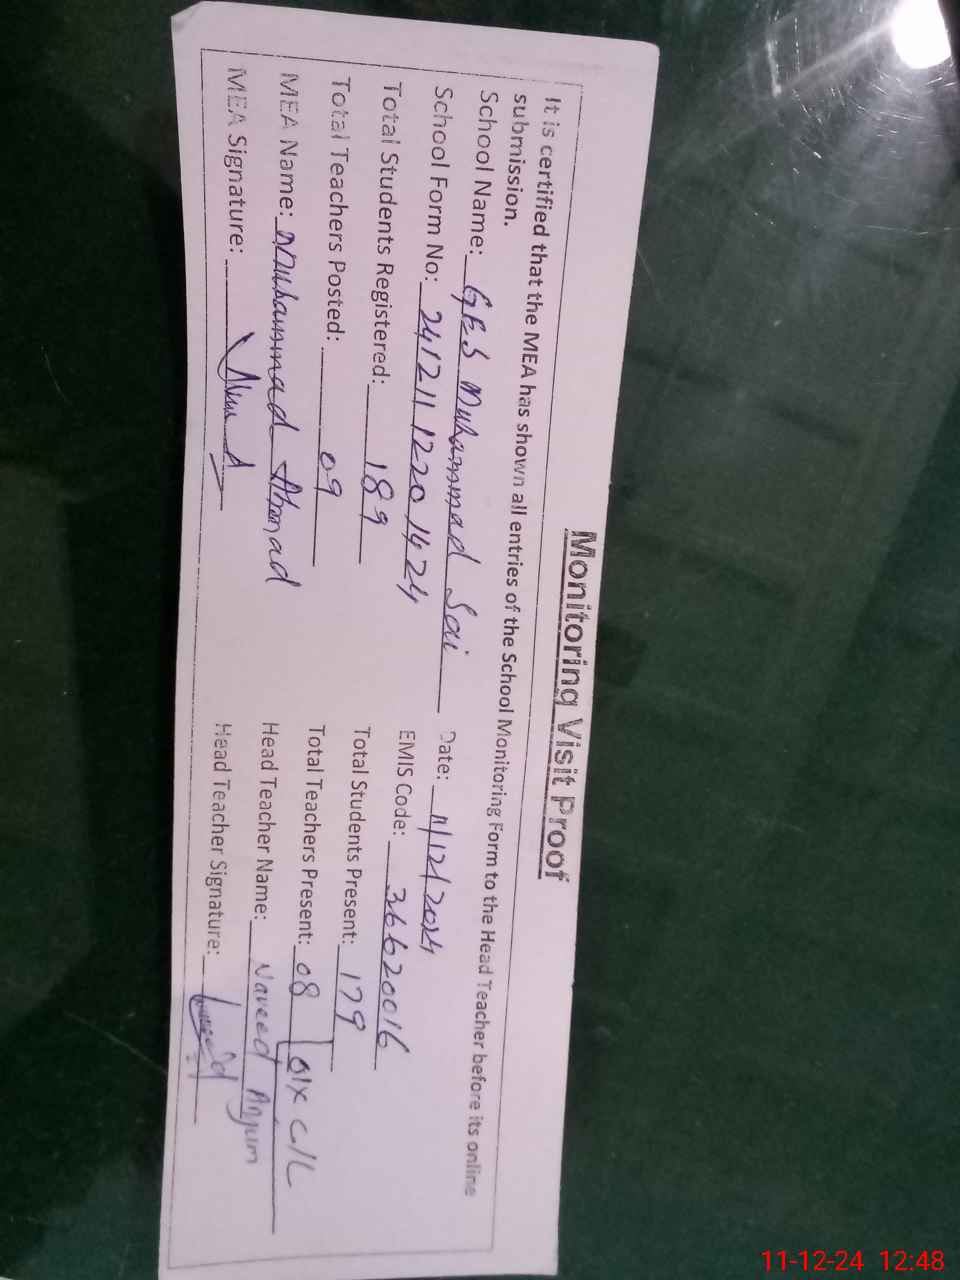 Monitoring Visit Proof
It is certified that the MEA has shown all entries of the School Monitoring Form to the Head Teacher before its online
submission.
School Name: GES Muhammad Sai Date: 11/12/2024
School Form No: 24121112201424 EMIS Code: 36620016
Total Students Registered: 189 Total Students Present: 179
Total Teachers Posted: 09 Total Teachers Present: 08 01x C/L
MEA Name: Muhammad Ahmad Head Teacher Name: Naveed Anjum
MEA Signature: Head Teacher Signature:
11-12-24 12:48